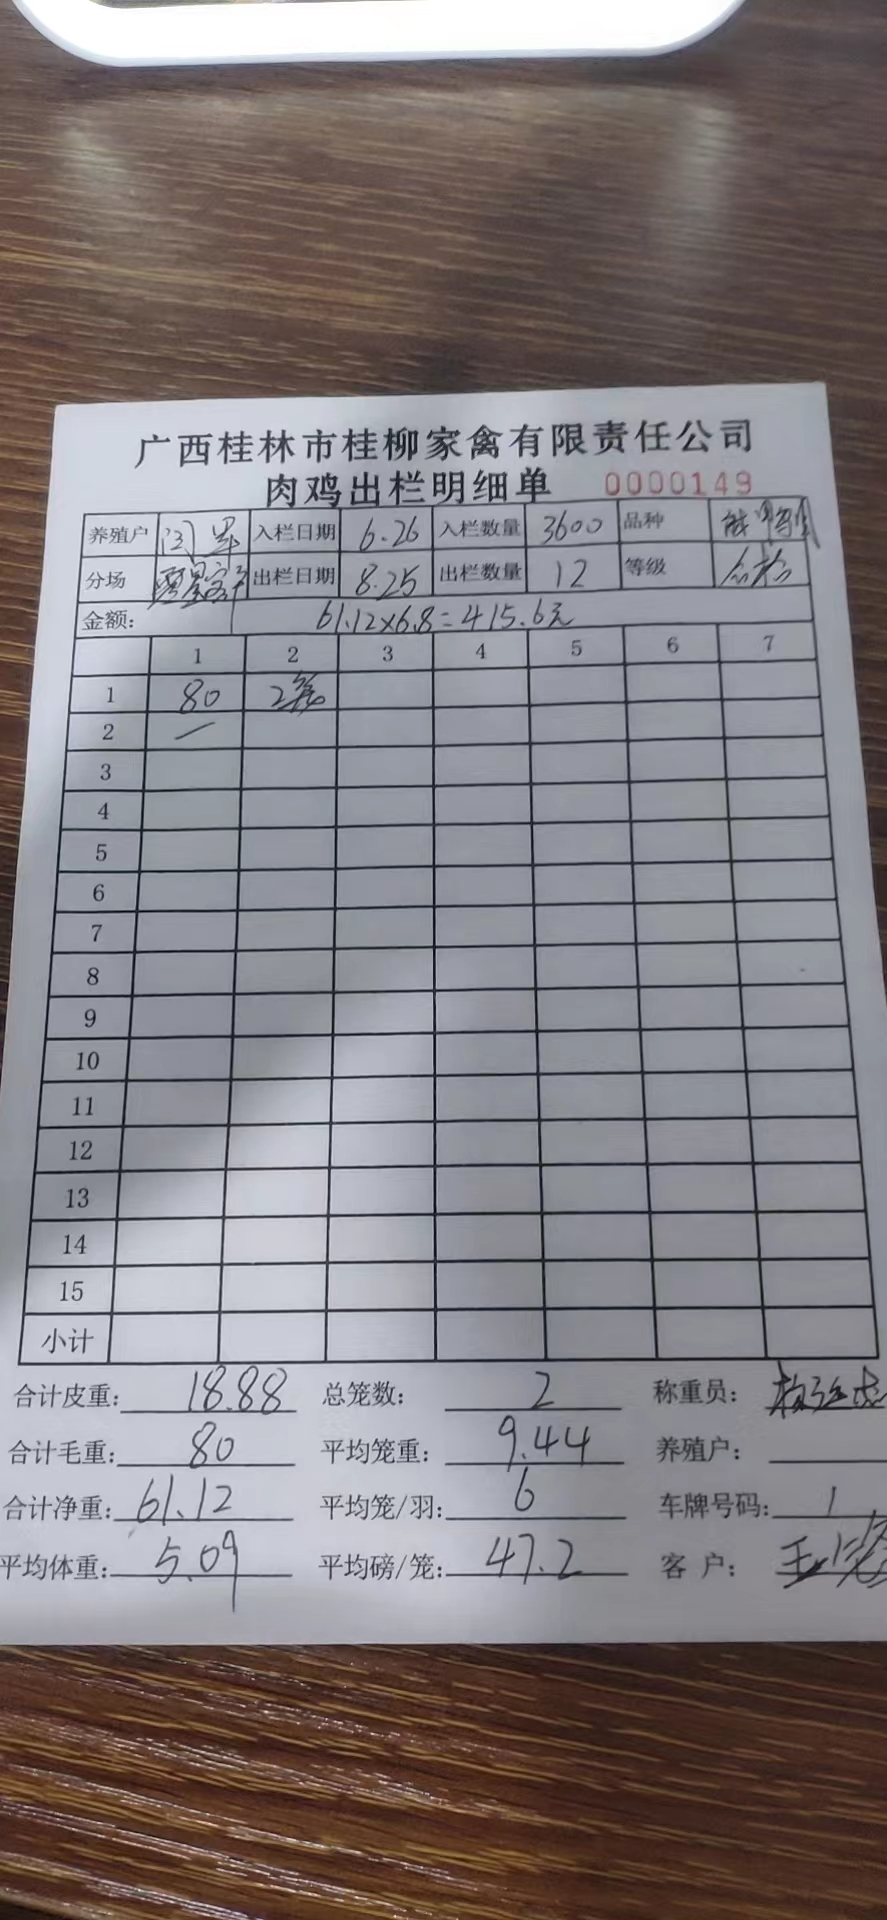 广西桂林市桂柳家禽有限责任公司
肉鸡出栏明细单 0000149
养殖户 入栏日期 6.26 入栏数量 3600 品种
分场 出栏日期 8.25 出栏数量 12 等级 合格
金额: 61.12×6.8=415.6元
1 2 3 4 5 6 7
1 80 2笼
2 一
3
4
5
6
7
8
9
10
11
12
13
14
15
小计
合计皮重: 18.88 总笼数: 2 称重员:
合计毛重: 80 平均笼重: 9.44 养殖户:
合计净重: 61.12 平均笼/羽: 6 车牌号码: 1
平均体重: 5.09 平均磅/笼: 47.2 客户: